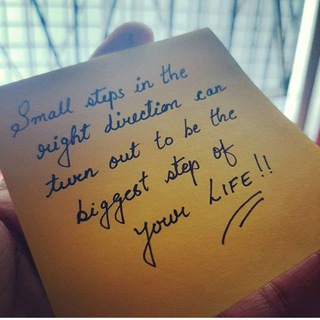 Small steps in the
right direction can
turn out to be the
biggest step of
your LIFE!!